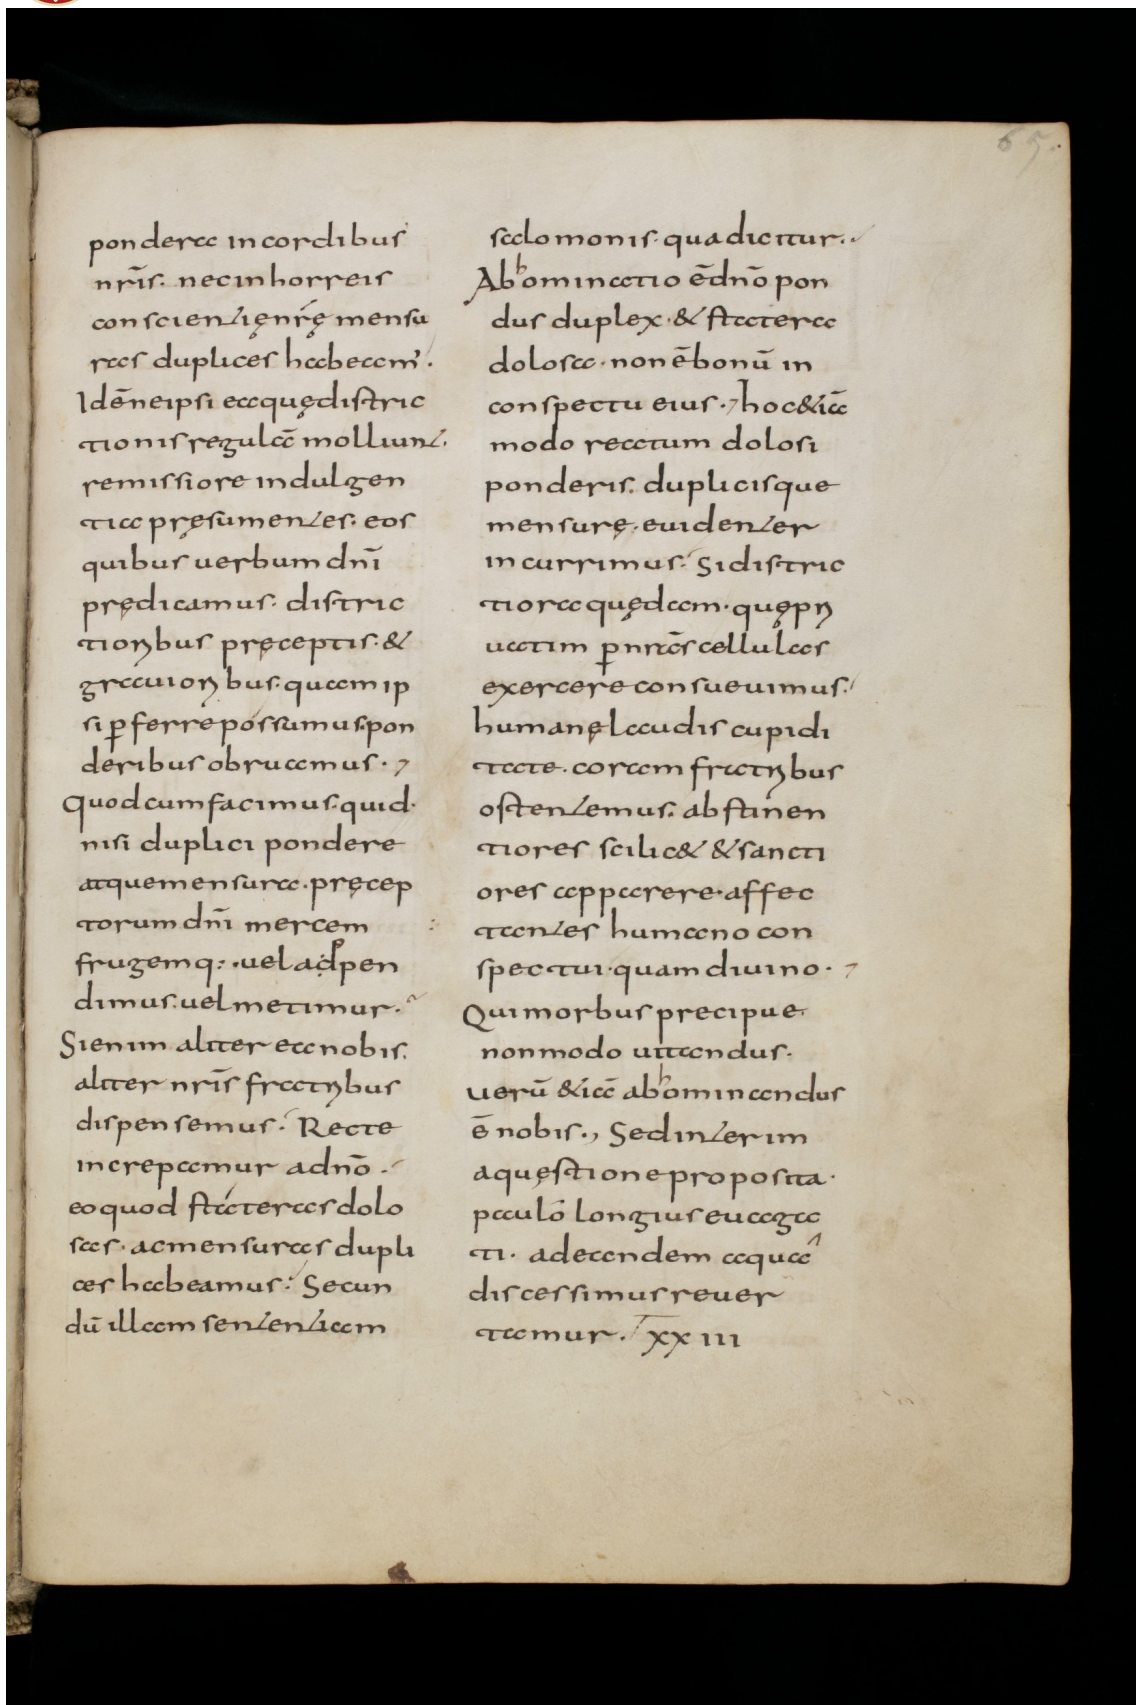 65.
pondera in cordibus
nr̄is. nec in horreis
conscientię nr̄ę mensu
ras duplices habeam᾽.
Id ē ne ipsi ea quę distric
tionis regulā molliunt.
remissiore indulgen
tia pręsumentes. eos
quibus uerbum dnī
prędicamus. distric
tioribus pręceptis. &
grauioribus. quam ip
si ꝑferre possumus. pon
deribus obruamus.
Quod cum facimus. quid.
nisi duplici pondere
atque mensura. pręcep
torum dnī mercem
frugemq: uel adpen
dimus. uel metimur.
Si enim aliter ea nobis.
aliter nr̄is fratribus
dispensemus. Recte
increpamur a dnō.
eo quod stateras dolo
sas. ac mensuras dupli
ces habeamus. Secun
dū illam sententiam
salomonis. qua dicitur.
Abhominatio ē dnō pon
dus duplex. & statera
dolosa. non ē bonū in
conspectu eius. hoc &iā
modo reatum dolosi
ponderis. duplicisque
mensurę. euidenter
incurrimus. Si distric
tiora quędam. quę pri
uatim ꝑ nrās cellulas
exercere consueuimus.
humanę laudis cupidi
tate. coram fratribus
ostentemus. abstinen
tiores scilic& & sancti
ores apparere. affec
tantes humano con
spectui. quam diuino.
Qui morbus precipue
non modo uitandus.
uerū &iā abhominandus
ē nobis., Sed interim
a quęstione proposita.
paulō longius euaga
ti. ad eandem a quā
discessimus reuer
tamur. XXIII